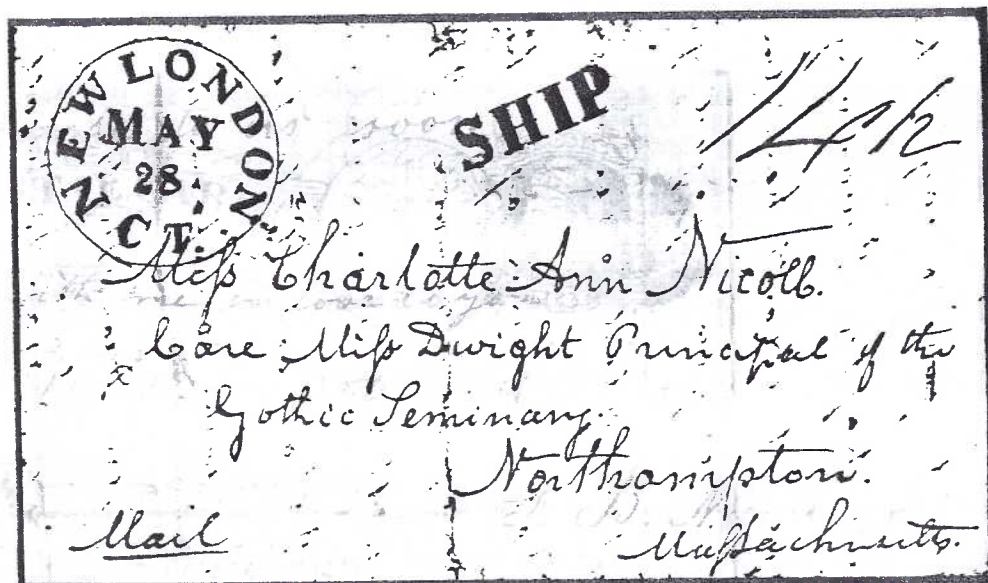 NEW LONDON
MAY
28
CT.
SHIP
14 ½
Miss Charlotte Ann Nicoll.
Care Miss Dwight Principal of the
Gothic Seminary.
Northampton.
Mail
Massachusetts.